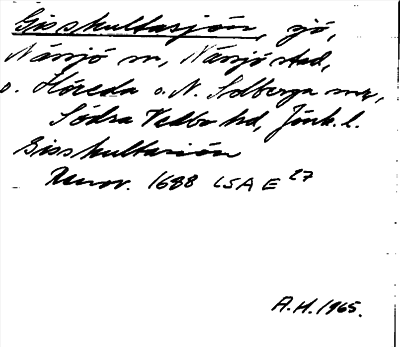 Gisskultasjön, sjö,
Nässjö sn, Nässjö stad,
o. Höreda o. N. Solberga snr,
Södra Vedbo hd, Jönk. l.
Gisskultasiön
Renov. 1688 LSA E 27
A.H. 1965.